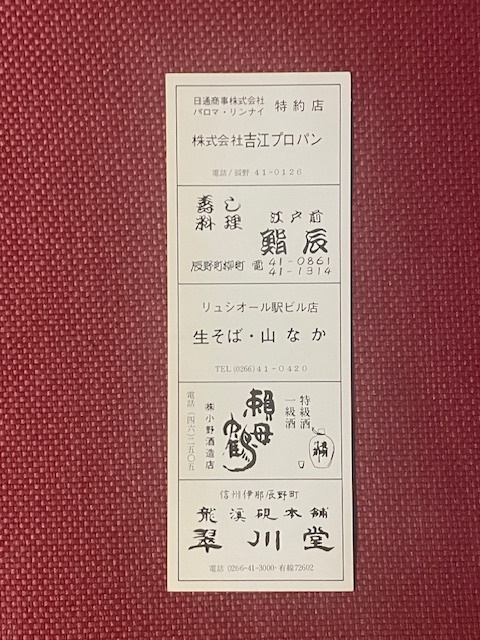 日通商事株式会社
パロマ・リンナイ
特約店
株式会社吉江プロパン
電話/辰野 41-0126
寿し
料理
江戸前
鮨辰
辰野町柳町 電 41-0861
41-1314
リュシオール駅ビル店
生そば・山なか
TEL(0266)41-0420
特級酒
一級酒
頼母鶴
㈱小野酒造店
電話(四六)二五〇五
信州伊那辰野町
龍渓硯本舗
翠川堂
電話 0266-41-3000・有線72602